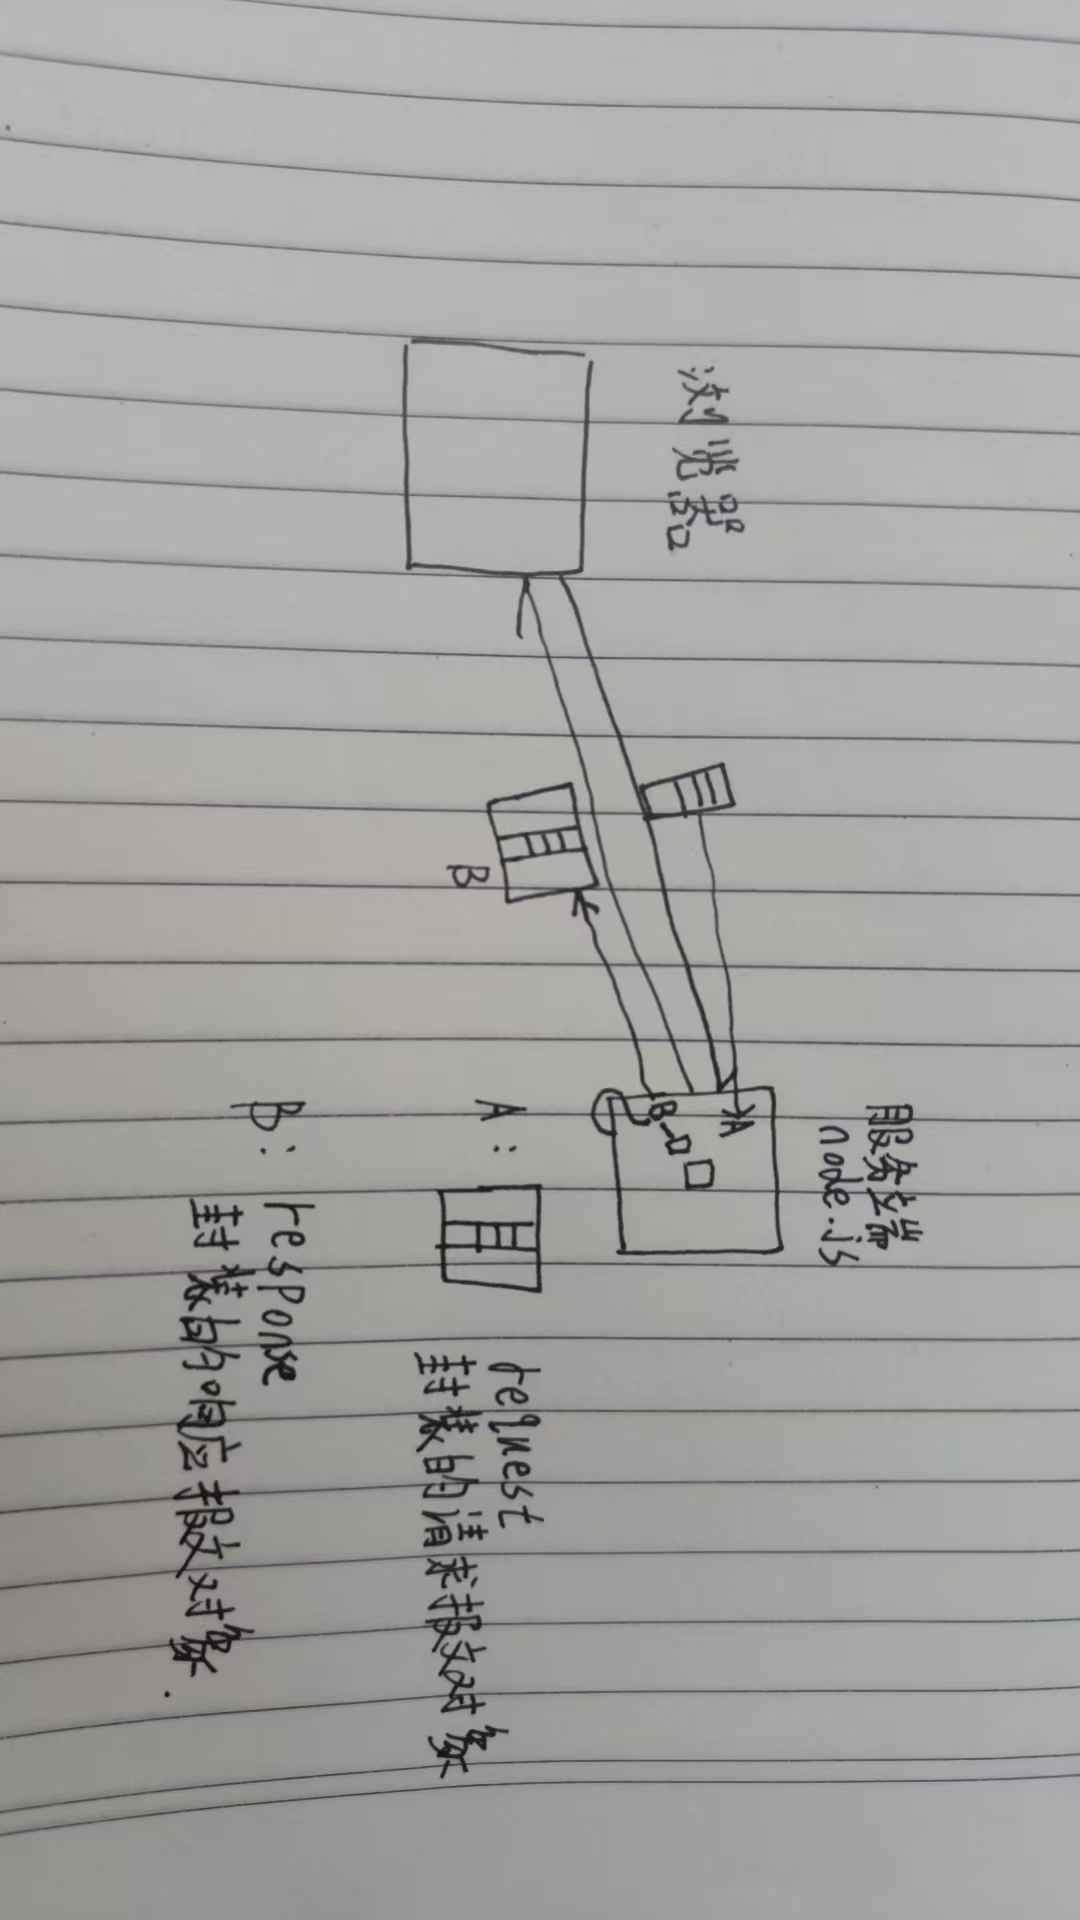 服务端
node.js
浏览器
A
B
B
A: request
封装的请求报文对象
B: response
封装的响应报文对象.